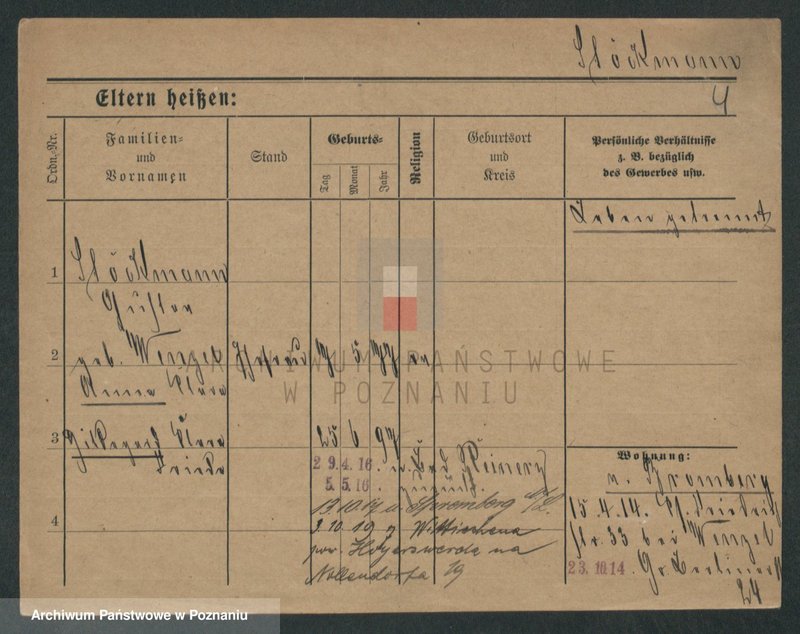 Stöckmann
4
Eltern heißen:
Ordn.-Nr.
Familien-
und
Vornamen
Stand
Geburts-
Tag
Monat
Jahr
Religion
Geburtsort
und
Kreis
Persönliche Verhältnisse
z. B. bezüglich
des Gewerbes usw.
Leben getrennt
1
Stöckmann
Gustav
2
geb. Wenzel
Anna Klara
5
77
ev
3
Hildegard Klara
Frieda
25 6 97
29.4.16 n. Bad Reinerz
5.5.16. zurück
13.10.17 n. Spremberg N/L.
4
3.10.19 z Wittichenau
pow. Hoyerswerda na
Nollendorfa 19
Wohnung:
v. Bromberg
15.4.14. Gr. Berliner
str. 33 bei Wenzel
23.10.14. Gr. Berliner
24
ARCHIWUM PAŃSTWOWE
W POZNANIU
Archiwum Państwowe w Poznaniu